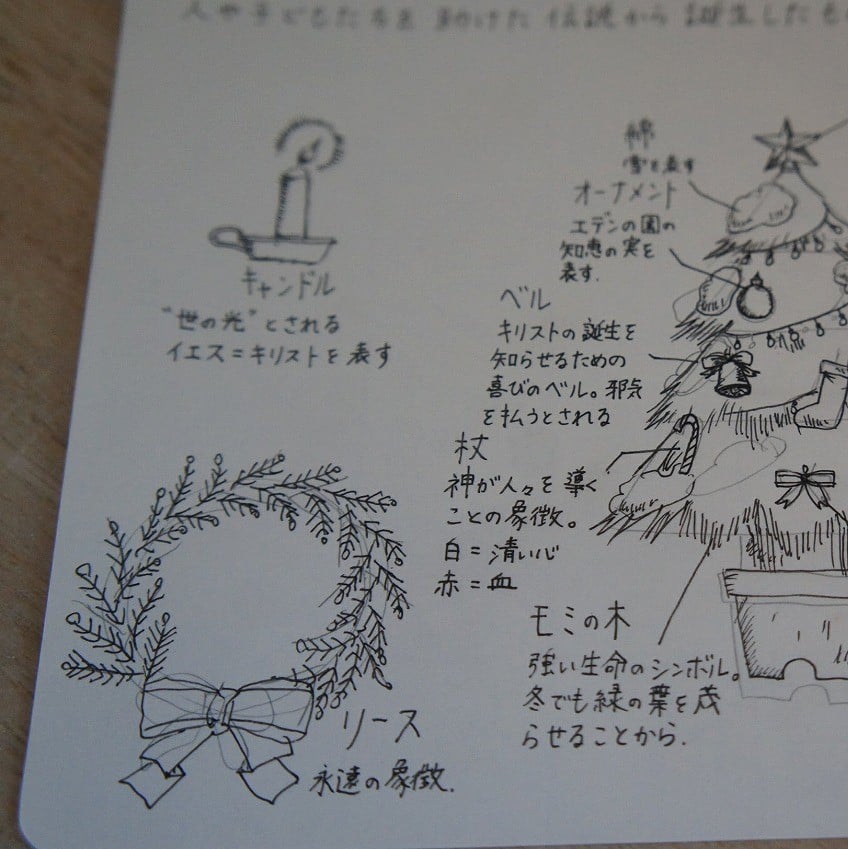 人や子どもたちを 助けた 伝説から 誕生したも
綿
雪を表す
オーナメント
エデンの園の
知恵の実を
表す.
キャンドル
"世の光"とされる
イエス=キリストを表す
ベル
キリストの誕生を
知らせるための
喜びのベル。邪気
を払うとされる
杖
神が人々を導く
ことの象徴。
白=清い心
赤=血
モミの木
強い生命のシンボル。
冬でも緑の葉を茂
らせることから.
リース
永遠の象徴.